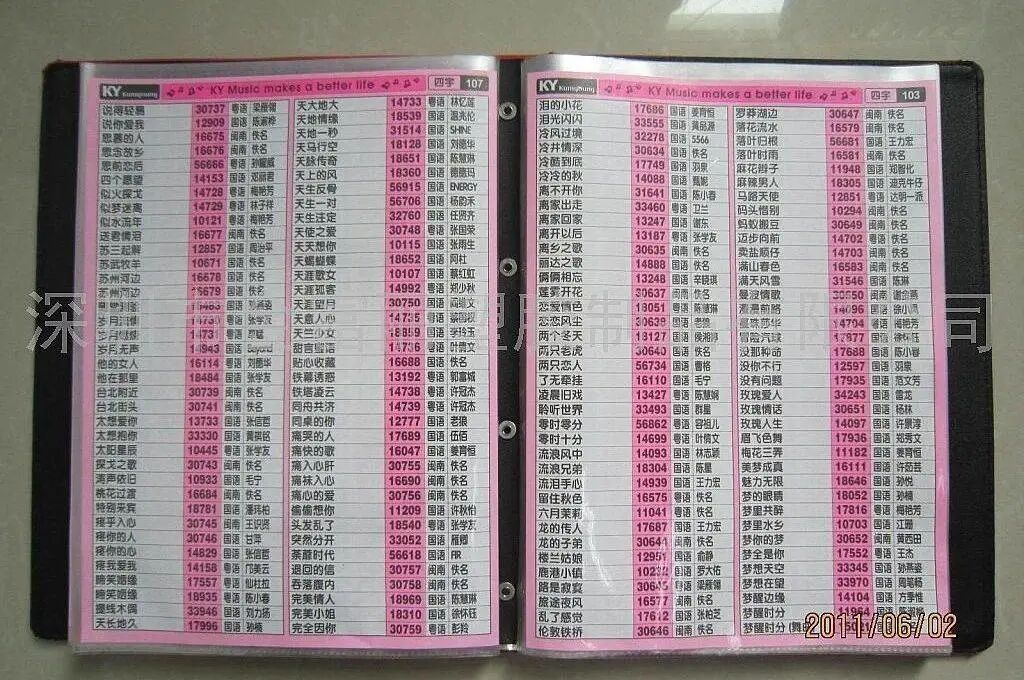 KY KuangYung KY Music makes a better life 四字 107
说得轻易 30737 粤语 梁雁翎
说你爱我 12909 国语 陈淑桦
思慕的人 16675 闽南 佚名
思念故乡 16676 闽南 佚名
思前恋后 56666 粤语 孙耀威
四个愿望 14153 国语 邓丽君
似火探戈 14728 粤语 梅艳芳
似梦迷离 14729 粤语 林子祥
似水流年 10121 粤语 梅艳芳
送君情泪 16677 闽南 佚名
苏三起解 12857 国语 周治平
苏武牧羊 10671 国语 佚名
苏州河边 16678 国语 佚名
苏州河边 16679 国语 佚名
岁月无声 14943 国语 Beyond
他的女人 16114 粤语 刘德华
他在那里 18484 国语 张学友
台北附近 30739 闽南 佚名
台北街头 30741 闽南 佚名
太想爱你 13733 国语 张信哲
太想抱你 33330 国语 黄磊铭
太阳星辰 10445 粤语 张学友
探戈之歌 30743 闽南 佚名
涛声依旧 10933 国语 毛宁
桃花过渡 16684 闽南 佚名
特别来宾 18781 国语 潘玮柏
疼乎入心 30745 闽南 王识贤
疼你的人 30746 闽南 甘萍
疼你的心 14829 国语 张信哲
疼我爱我 14158 国语 邝美云
啼笑姻缘 17557 粤语 仙杜拉
啼笑姻缘 18935 粤语 陈小春
提线木偶 33946 国语 刘力扬
天长地久 17996 国语 孙楠
天大地大 14733 粤语 林忆莲
天地情缘 18539 国语 温兆伦
天地一秒 31514 国语 SHINE
天马行空 18128 国语 刘德华
天脉传奇 18651 国语 陈慧琳
天上的风 18360 国语 德德玛
天生反骨 56915 国语 ENERGY
天生一对 56706 国语 杨韵禾
天生注定 32760 国语 任贤齐
天使之爱 30748 粤语 张国荣
天天想你 10115 国语 张雨生
天蝎蝴蝶 18652 国语 阿杜
天涯歌女 10107 国语 蔡红虹
天涯孤客 14992 粤语 郑少秋
天涯望月 30750 国语 阎维文
天意人心 14735 粤语
天竺少女 18859 国语 李玲玉
甜言蜜语 14736 粤语 叶倩文
贴心收藏 16688 国语 佚名
铁幕诱惑 13192 粤语 郭富城
铁塔凌云 14738 粤语 许冠杰
同舟共济 14739 粤语 许冠杰
同桌的你 12777 国语 老狼
痛哭的人 17689 国语 伍佰
痛快的歌 16047 国语 姜育恒
痛入心肝 30755 闽南 佚名
痛袜入心 16690 闽南 佚名
痛心的爱 30756 闽南 佚名
偷偷想你 11209 国语 许秋怡
头发乱了 18540 粤语 张学友
突然分开 33052 国语 雁卿
荼蘼时代 56618 国语 FIR
退回的信 30757 闽南 佚名
吞落腹内 30758 闽南 佚名
完美情人 18969 国语 陈慧琳
完美小姐 18310 国语 徐怀钰
完全因你 30759 粤语 彭羚
KY KuangYung KY Music makes a better life 四字 103
泪的小花 17686 国语 姜育恒
泪光闪闪 33555 国语 黄品源
冷风过境 32278 国语 5566
冷井情深 30634 闽南 佚名
冷酷到底 17749 国语 羽泉
冷冷的秋 14088 国语 甄妮
离不开你 31641 国语 陈小春
离家出走 33460 粤语 卫兰
离家回家 13247 国语 谢东
离开以后 13187 粤语 张学友
离乡之歌 30635 闽南 佚名
丽达之歌 14888 国语 佚名
俩俩相忘 13248 国语 辛晓琪
莲雾开花 30637 闽南 佚名
恋爱情色 13051 粤语 陈慧琳
恋恋风尘 30639 国语 老狼
两个冬天 13127 国语 侯湘婷
两只老虎 30640 国语 佚名
两只恋人 56734 国语 曹格
了无牵挂 16110 国语 毛宁
凌晨旧戏 13427 粤语 陈慧娴
聆听世界 33493 国语 群星
零时零分 56862 粤语 容祖儿
零时十分 14699 粤语 叶倩文
流浪风中 14093 国语 林志颖
流浪兄弟 18304 国语 陈星
流泪手心 14939 国语 王力宏
留住秋色 16575 粤语 佚名
六月茉莉 11041 粤语 佚名
龙的传人 17687 国语 王力宏
龙的子弟 30644 闽南 佚名
楼兰姑娘 12951 国语 俞静
鹿港小镇 10232 国语 罗大佑
路是寂寥 30645 粤语 梁雁翎
旅途夜风 16577 闽南 佚名
乱了感觉 17612 国语 张柏芝
伦敦铁桥 30646 闽南 佚名
罗莽湖边 30647 闽南 佚名
落花流水 16579 闽南 佚名
落叶归根 56681 国语 王力宏
落叶时雨 16581 闽南 佚名
麻花辫子 11948 国语 郑智化
麻辣男人 18305 国语 迪克牛仔
马路天使 12851 粤语 达明一派
码头惜别 10294 闽南 佚名
蚂蚁搬豆 30649 闽南 佚名
迈步向前 14702 粤语 佚名
卖盐顺仔 14703 闽南 佚名
满山春色 16583 闽南 佚名
满天风雪 31546 国语 陈琳
曼波情歌 30650 闽南 谢金燕
漫漫前路 14096 国语 徐小凤
蔓珠莎华 14704 粤语 梅艳芳
冒险汽球 17877 国语 徐怀钰
没那种命 17688 国语 陈小春
没你不行 12597 国语 羽泉
没有问题 17935 国语 范文芳
玫瑰爱人 34243 国语 雷龙
玫瑰情话 30651 国语 杨林
玫瑰人生 14097 国语 许景淳
眉飞色舞 17936 国语 郑秀文
梅花三弄 11182 国语 姜育恒
美梦成真 16111 国语 许茹芸
魅力无限 18646 国语 孙悦
梦的眼睛 18052 国语 孙楠
梦里共醉 17816 粤语 梅艳芳
梦里水乡 10703 国语 江珊
梦你的梦 30652 闽南 黄西田
梦全是你 17552 粤语 王杰
梦想天空 33345 国语 孙燕姿
梦想在望 33970 国语 周笔畅
梦醒边缘 14104 国语 方季惟
梦醒时分 11964 国语 陈淑桦
2011/06/02